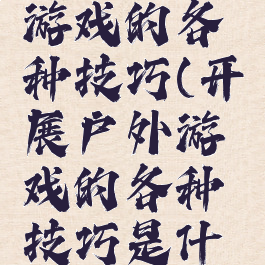 游戏的各
种技巧(开
展户外游
戏的各种
技巧是什